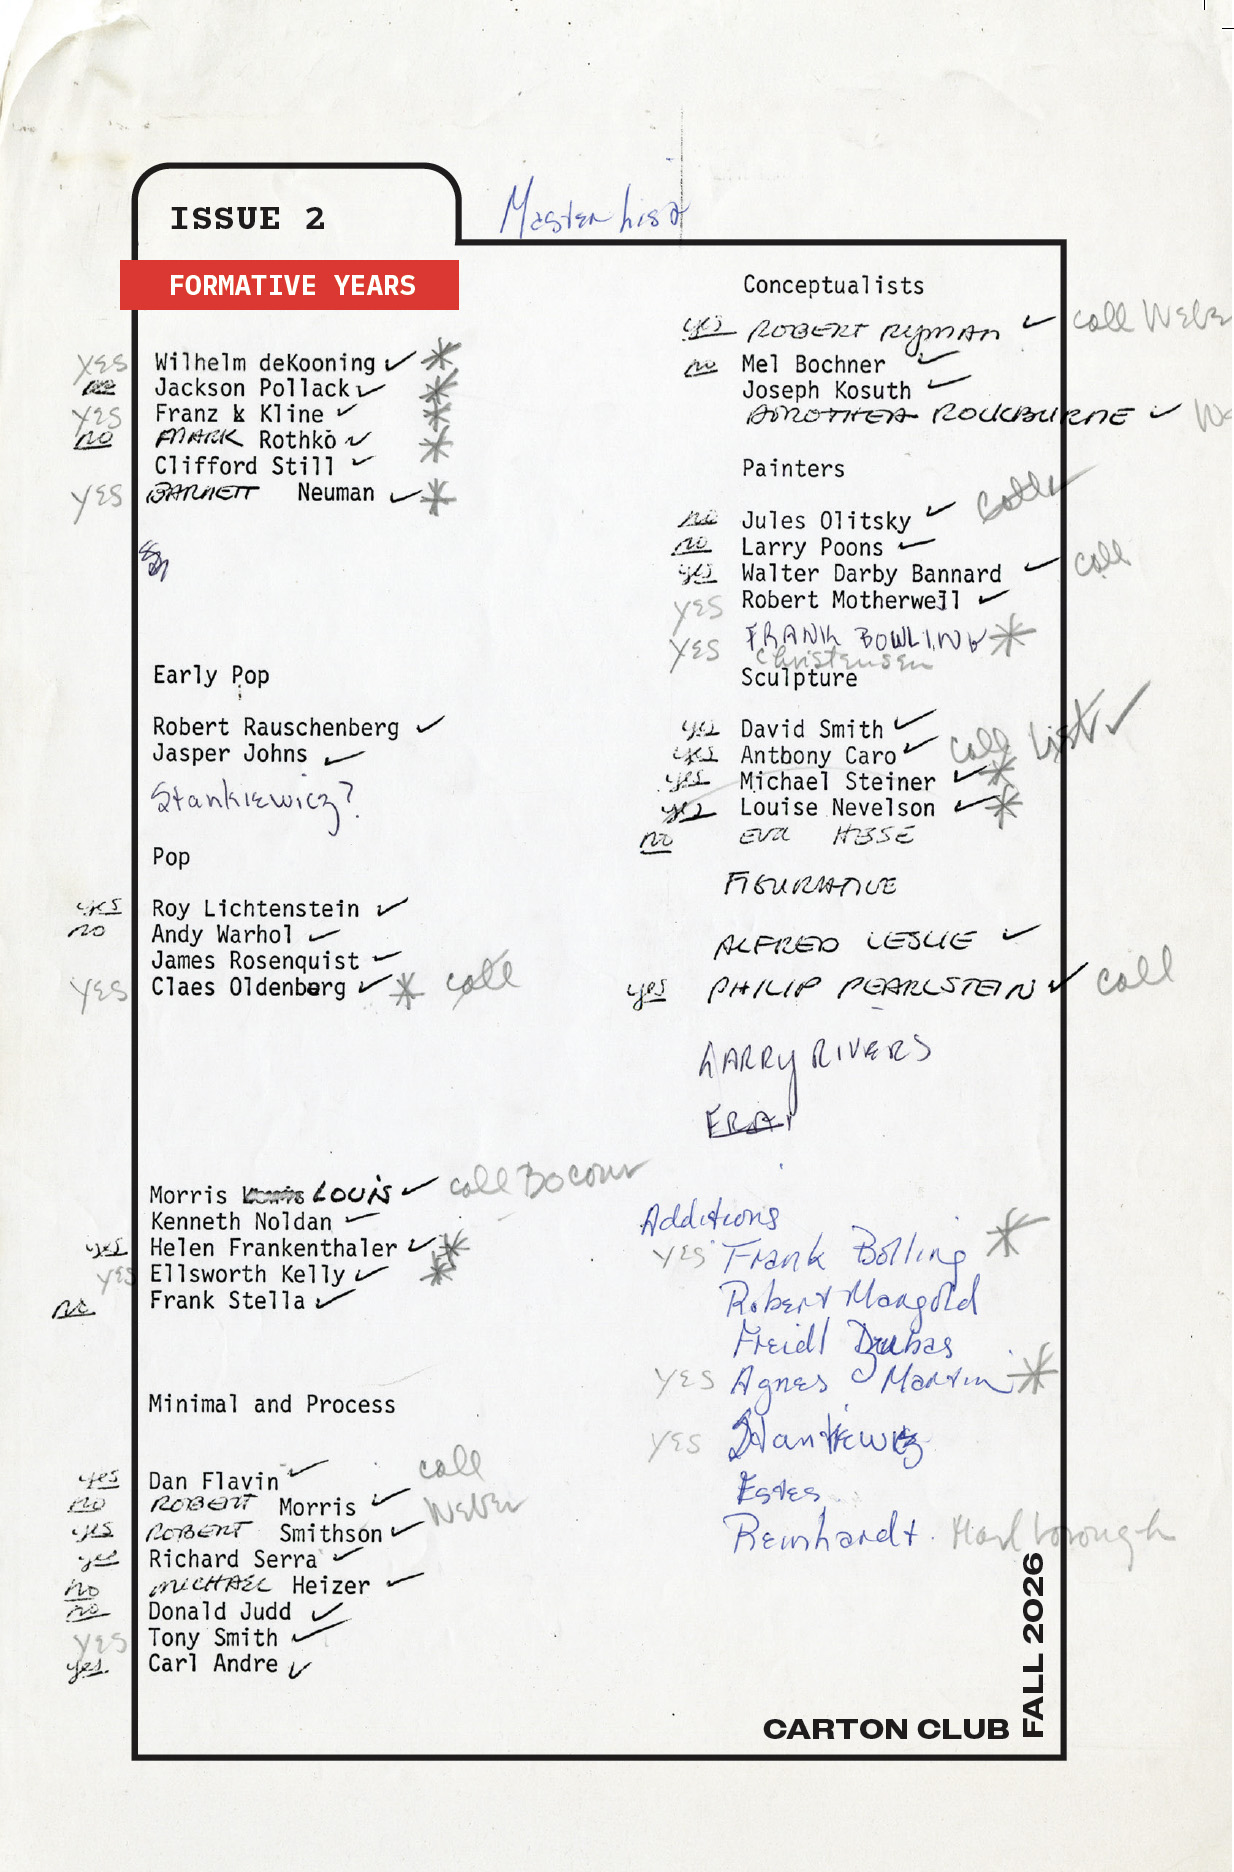 Master List
ISSUE 2
FORMATIVE YEARS
YES Wilhelm deKooning ✓ *
no Jackson Pollack ✓ *
YES Franz k Kline ✓ *
no MARK Rothko ✓ *
Clifford Still ✓
YES BARNETT Neuman ✓ *
Early Pop
Robert Rauschenberg ✓
Jasper Johns ✓
Stankiewicz?
Pop
yes Roy Lichtenstein ✓
no Andy Warhol ✓
James Rosenquist ✓
YES Claes Oldenberg ✓ * call
Morris LOUIS ✓ call Bocour
Kenneth Noldan ✓
yes Helen Frankenthaler ✓ *
YES Ellsworth Kelly ✓ *
no Frank Stella ✓
Minimal and Process
call
yes Dan Flavin ✓
no ROBERT Morris ✓ Weber
yes ROBERT Smithson ✓
yes Richard Serra ✓
no MICHAEL Heizer ✓
no Donald Judd ✓
YES Tony Smith ✓
yes. Carl Andre ✓
Conceptualists
yes ROBERT RYMAN ✓ call Weber
no Mel Bochner ✓
Joseph Kosuth ✓
DOROTHEA ROCKBURNE ✓ We
Painters
no Jules Olitsky ✓ call
no Larry Poons ✓
yes Walter Darby Bannard ✓ call
YES Robert Motherwell ✓
YES FRANK BOWLING *
Christensen
Sculpture
yes David Smith ✓
yes Antbony Caro ✓ call List ✓
yes Michael Steiner ✓ *
yes Louise Nevelson ✓ *
no EVA HESSE
FIGURATIVE
ALFRED LESLIE ✓
yes PHILIP PEARLSTEIN ✓ call
LARRY RIVERS
FRA
Additions
YES Frank Bolling *
Robert Mangold
Freidl Dzubas
YES Agnes Martin *
YES Stankiewicz
Estes
Reinhardt. Marlborough
FALL 2026
CARTON CLUB